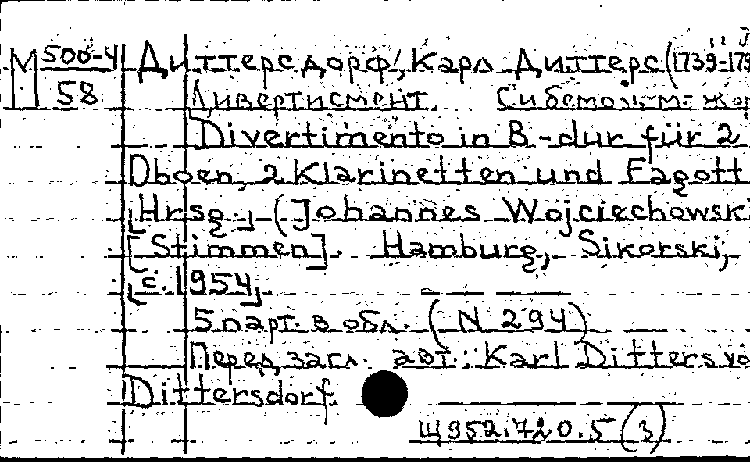 М 500-4
58
Диттерсдорф, Карл Диттерс (1739-179
Дивертисмент. Си бемоль маж
Divertimento in B-dur für 2
Oboen, 2 Klarinetten und Fagott
[Hrsg.] (Johannes Wojciechowski
[Stimmen]. Hamburg, Sikorski,
[c. 1954].
5 парт. в обл. (N 294)
Перед загл. авт.: Karl Ditters vo
Dittersdorf.
Щ952.720.5(3)